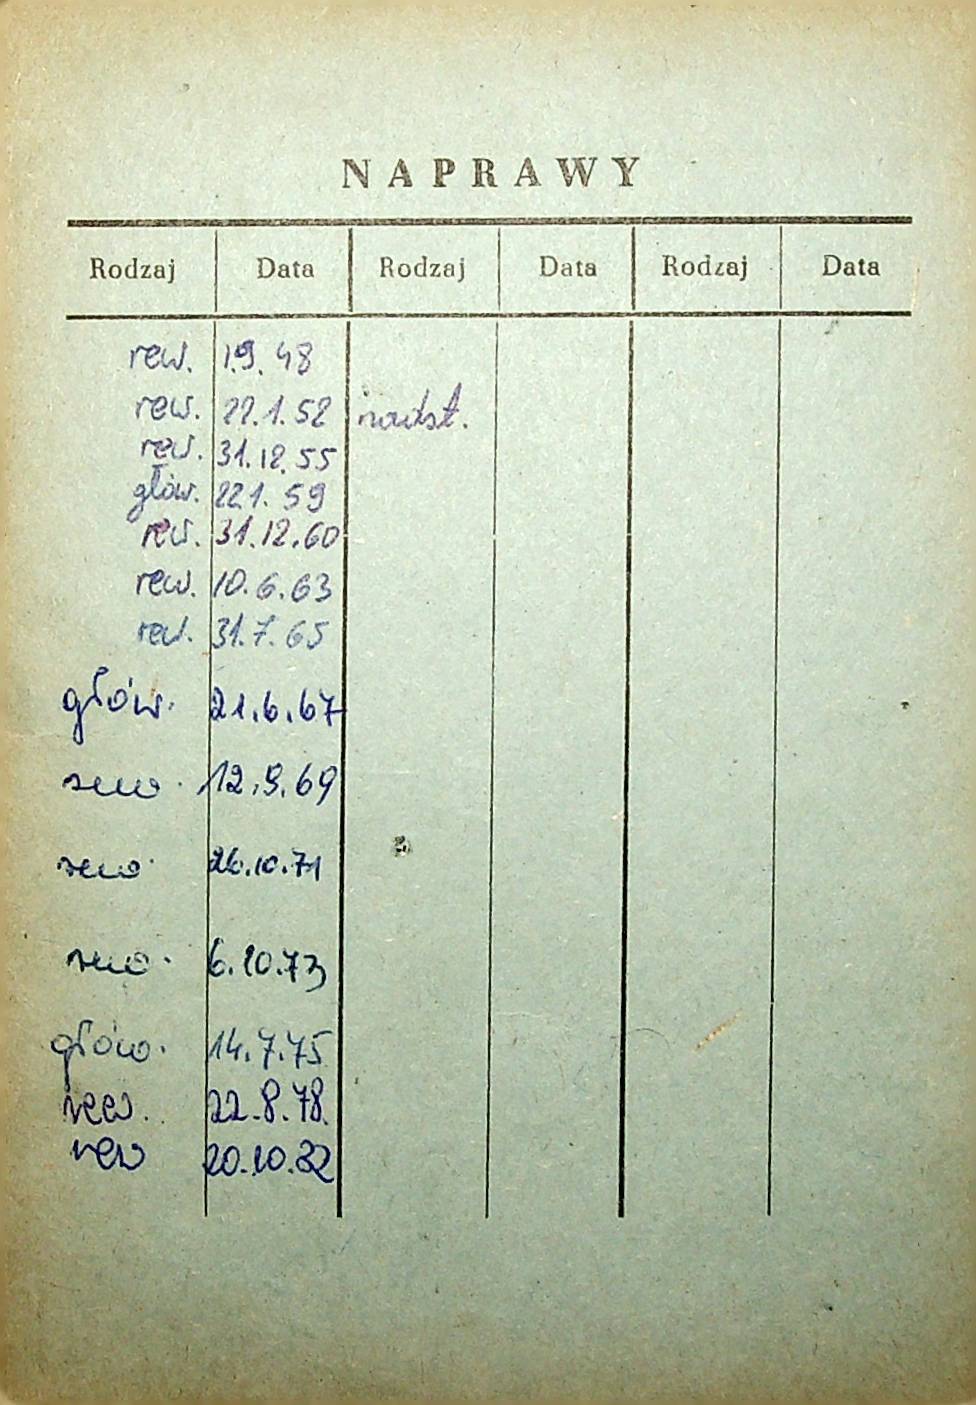 NAPRAWY
Rodzaj Data Rodzaj Data Rodzaj Data
rew. 1.9.48
rew. 22.1.52 nadst.
rew. 31.12.55
głów. 22.1.59
rew. 31.12.60
rew. 10.6.63
rew. 31.7.65
głów. 21.6.67
rew. 12.9.69
rew. 26.10.71
rew. 6.10.73
głów. 14.7.75
rew. 22.8.78.
rew 20.10.82